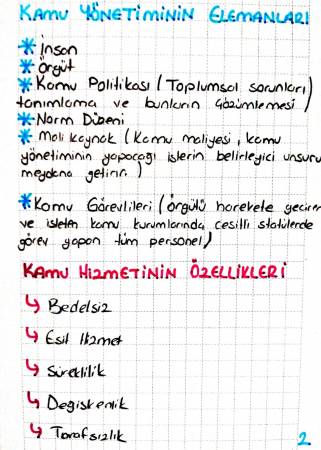 KAMU YÖNETİMİNİN ELEMANLARI
* İnsan
* Örgüt
* Kamu Politikası (Toplumsal sorunları)
tanımlama ve bunların çözümlemesi)
* Norm Düzeni
* Mali kaynak (Kamu maliyesi, kamu
yönetiminin yapacağı işlerin belirleyici unsuru
meydana getirir.)
* Kamu Görevlileri (örgütü harekete geçiren
ve işleten kamu kurumlarında çeşitli statülerde
görev yapan tüm personel)
KAMU HİZMETİNİN ÖZELLİKLERİ
↳ Bedelsiz
↳ Eşit Hizmet
↳ Süreklilik
↳ Değişkenlik
↳ Tarafsızlık
2